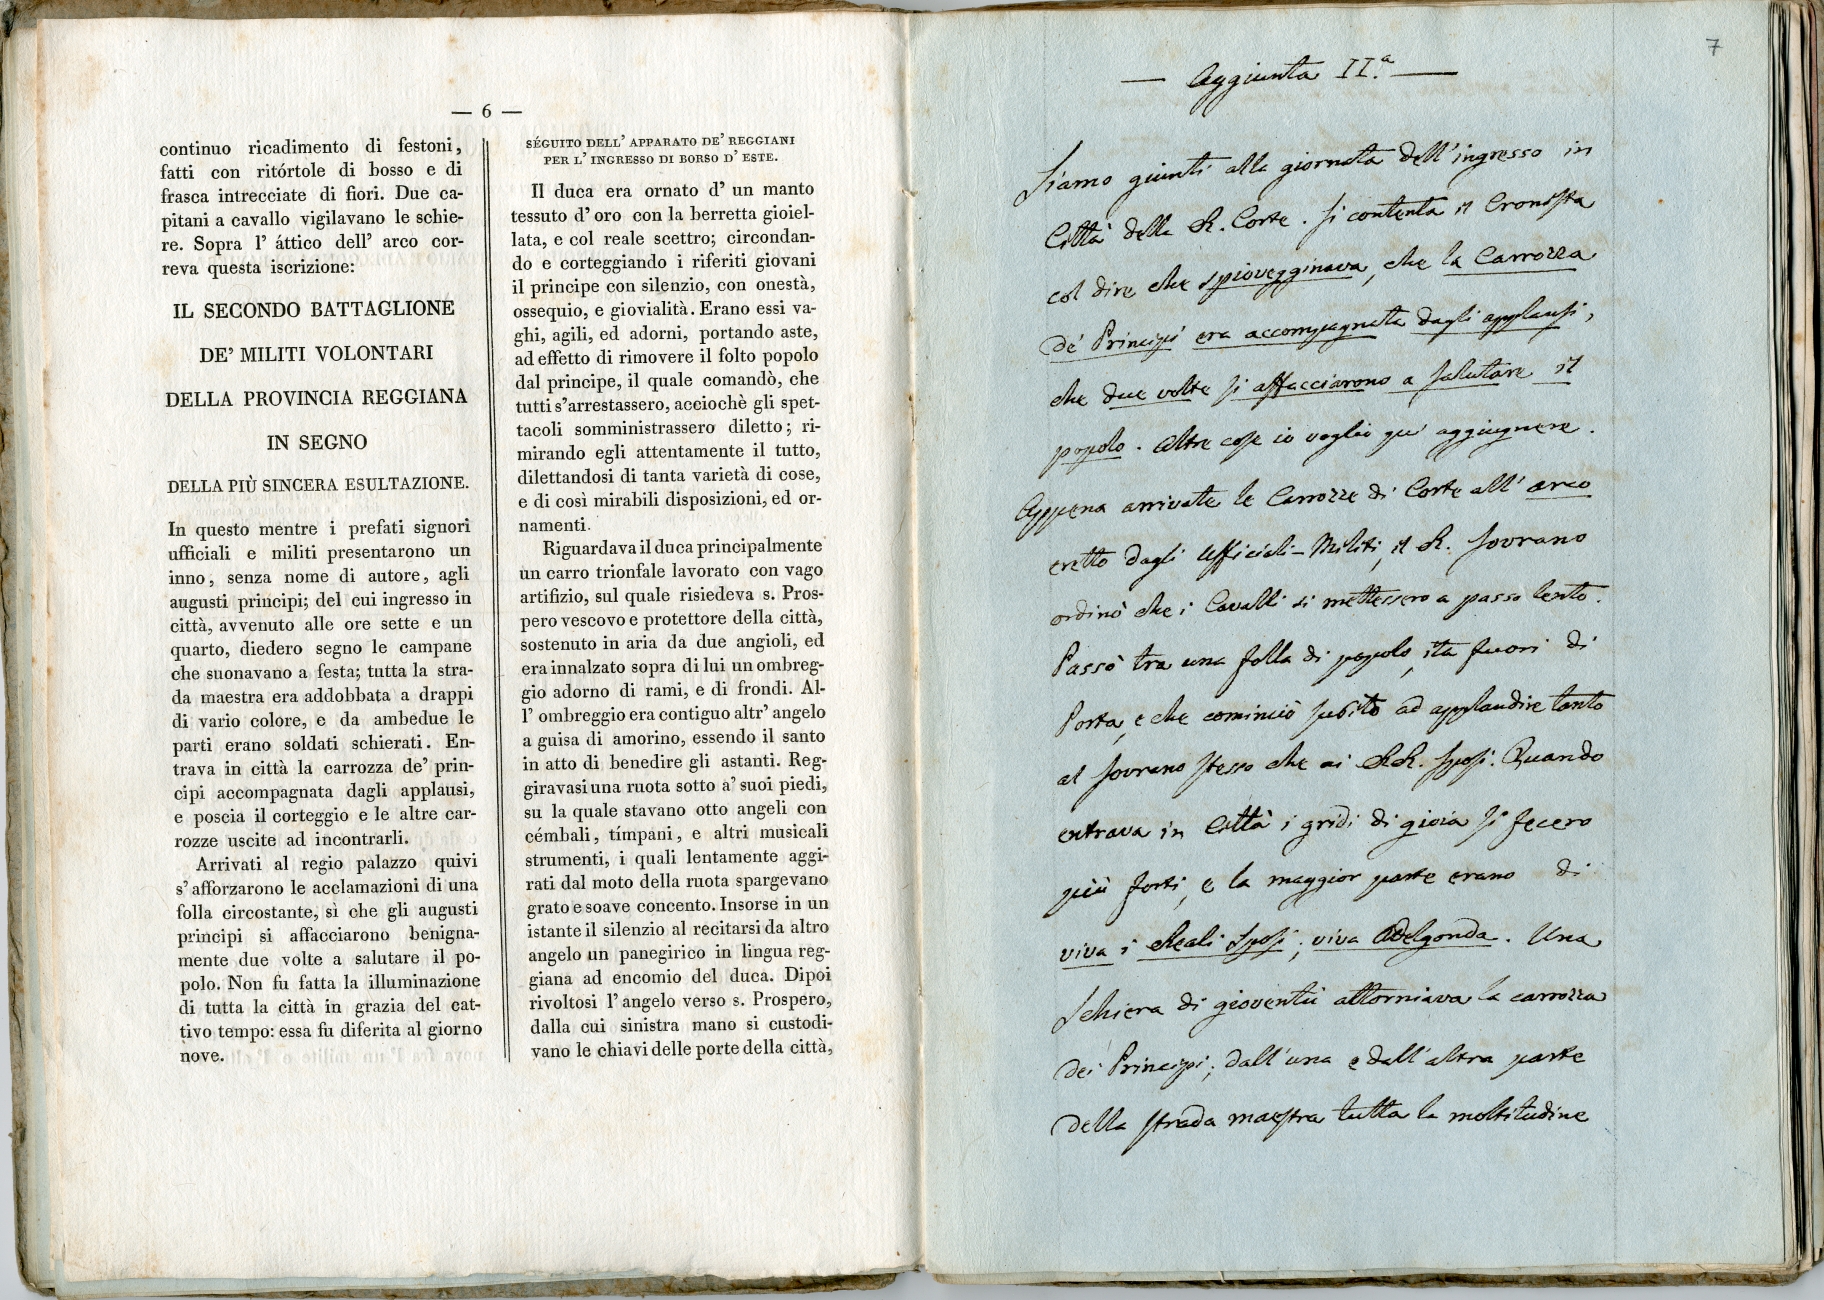 — 6 —
continuo ricadimento di festoni,
fatti con ritórtole di bosso e di
frasca intrecciate di fiori. Due ca-
pitani a cavallo vigilavano le schie-
re. Sopra l' áttico dell' arco cor-
reva questa iscrizione:
IL SECONDO BATTAGLIONE
DE' MILITI VOLONTARI
DELLA PROVINCIA REGGIANA
IN SEGNO
DELLA PIÙ SINCERA ESULTAZIONE.
In questo mentre i prefati signori
ufficiali e militi presentarono un
inno, senza nome di autore, agli
augusti principi; del cui ingresso in
città, avvenuto alle ore sette e un
quarto, diedero segno le campane
che suonavano a festa; tutta la stra-
da maestra era addobbata a drappi
di vario colore, e da ambedue le
parti erano soldati schierati. En-
trava in città la carrozza de' prin-
cipi accompagnata dagli applausi,
e poscia il corteggio e le altre car-
rozze uscite ad incontrarli.
Arrivati al regio palazzo quivi
s' afforzarono le acclamazioni di una
folla circostante, sì che gli augusti
principi si affacciarono benigna-
mente due volte a salutare il po-
polo. Non fu fatta la illuminazione
di tutta la città in grazia del cat-
tivo tempo: essa fu diferita al giorno
nove.
SÉGUITO DELL' APPARATO DE' REGGIANI
PER L' INGRESSO DI BORSO D' ESTE.
Il duca era ornato d' un manto
tessuto d' oro con la berretta gioiel-
lata, e col reale scettro; circondan-
do e corteggiando i riferiti giovani
il principe con silenzio, con onestà,
ossequio, e giovialità. Erano essi va-
ghi, agili, ed adorni, portando aste,
ad effetto di rimovere il folto popolo
dal principe, il quale comandò, che
tutti s'arrestassero, acciochè gli spet-
tacoli somministrassero diletto; ri-
mirando egli attentamente il tutto,
dilettandosi di tanta varietà di cose,
e di così mirabili disposizioni, ed or-
namenti.
Riguardava il duca principalmente
un carro trionfale lavorato con vago
artifizio, sul quale risiedeva s. Pros-
pero vescovo e protettore della città,
sostenuto in aria da due angioli, ed
era innalzato sopra di lui un ombreg-
gio adorno di rami, e di frondi. Al-
l' ombreggio era contiguo altr' angelo
a guisa di amorino, essendo il santo
in atto di benedire gli astanti. Reg-
giravasi una ruota sotto a' suoi piedi,
su la quale stavano otto angeli con
cémbali, tímpani, e altri musicali
strumenti, i quali lentamente aggi-
rati dal moto della ruota spargevano
grato e soave concento. Insorse in un
istante il silenzio al recitarsi da altro
angelo un panegirico in lingua reg-
giana ad encomio del duca. Dipoi
rivoltosi l' angelo verso s. Prospero,
dalla cui sinistra mano si custodi-
vano le chiavi delle porte della città,
7
— Aggiunta II.ª —
Siamo giunti alla giornata dell'ingresso in
Città della R. Corte. Si contenta il Cronista
col dire che spiovegginava, che la Carrozza
de' Principi era accompagnata dagli applausi,
che due volte si affacciarono a salutare il
popolo. Altre cose io voglio qui aggiugnere.
Appena arrivate le Carrozze di Corte all' arco
eretto dagli Ufficiali-Militi, il R. Sovrano
ordinò che i Cavalli si mettessero a passo lento.
Passò tra una folla di popolo, ita fuori di
Porta, e che cominciò subito ad applaudire tanto
al Sovrano stesso che ai RR. Sposi. Quando
entrava in Città i gridi di gioia si fecero
più forti, e la maggior parte erano di
viva i Reali Sposi, viva Adelgonda. Una
Schiera di gioventù attorniava la carrozza
dei Principi; dall'una e dall'altra parte
della strada maestra tutta la moltitudine